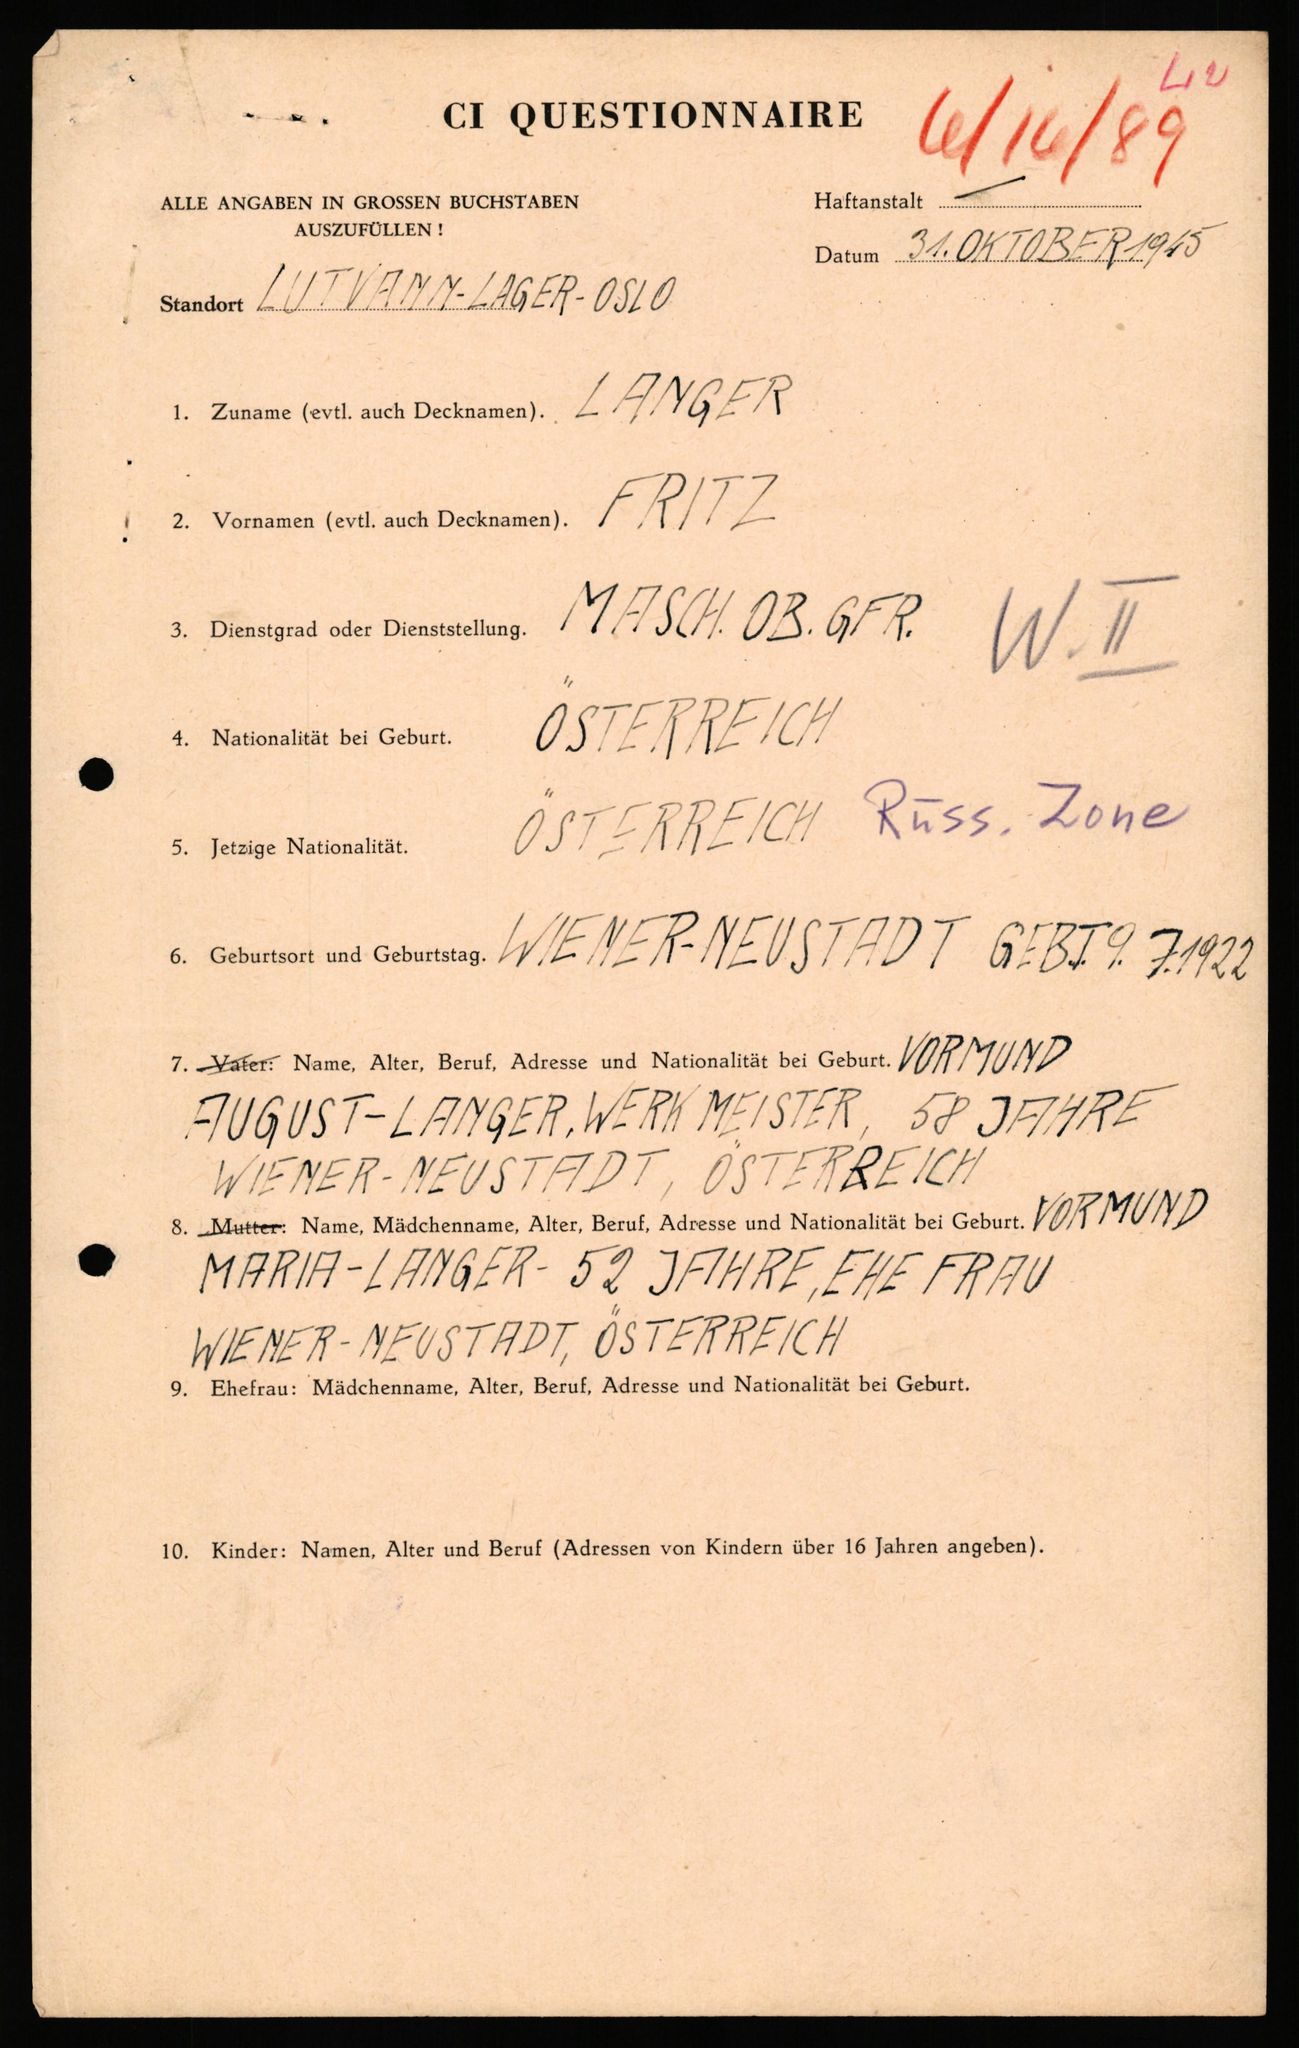 CI QUESTIONNAIRE
ALLE ANGABEN IN GROSSEN BUCHSTABEN
AUSZUFÜLLEN!
Haftanstalt —
Datum 31. OKTOBER 1945
Standort LUTVANN-LAGER-OSLO
1. Zuname (evtl. auch Decknamen). LANGER
2. Vornamen (evtl. auch Decknamen). FRITZ
3. Dienstgrad oder Dienststellung. MASCH. OB. GFR. W. II
4. Nationalität bei Geburt. ÖSTERREICH
5. Jetzige Nationalität. ÖSTERREICH Russ. Zone
6. Geburtsort und Geburtstag. WIENER-NEUSTADT 9. 7. 1922
7. Vater: Name, Alter, Beruf, Adresse und Nationalität bei Geburt. VORMUND
AUGUST-LANGER, WERKMEISTER, 58 JAHRE
WIENER-NEUSTADT, ÖSTERREICH
8. Mutter: Name, Mädchenname, Alter, Beruf, Adresse und Nationalität bei Geburt. VORMUND
MARIA-LANGER- 52 JAHRE, EHE FRAU
WIENER-NEUSTADT, ÖSTERREICH
9. Ehefrau: Mädchenname, Alter, Beruf, Adresse und Nationalität bei Geburt.
10. Kinder: Namen, Alter und Beruf (Adressen von Kindern über 16 Jahren angeben).